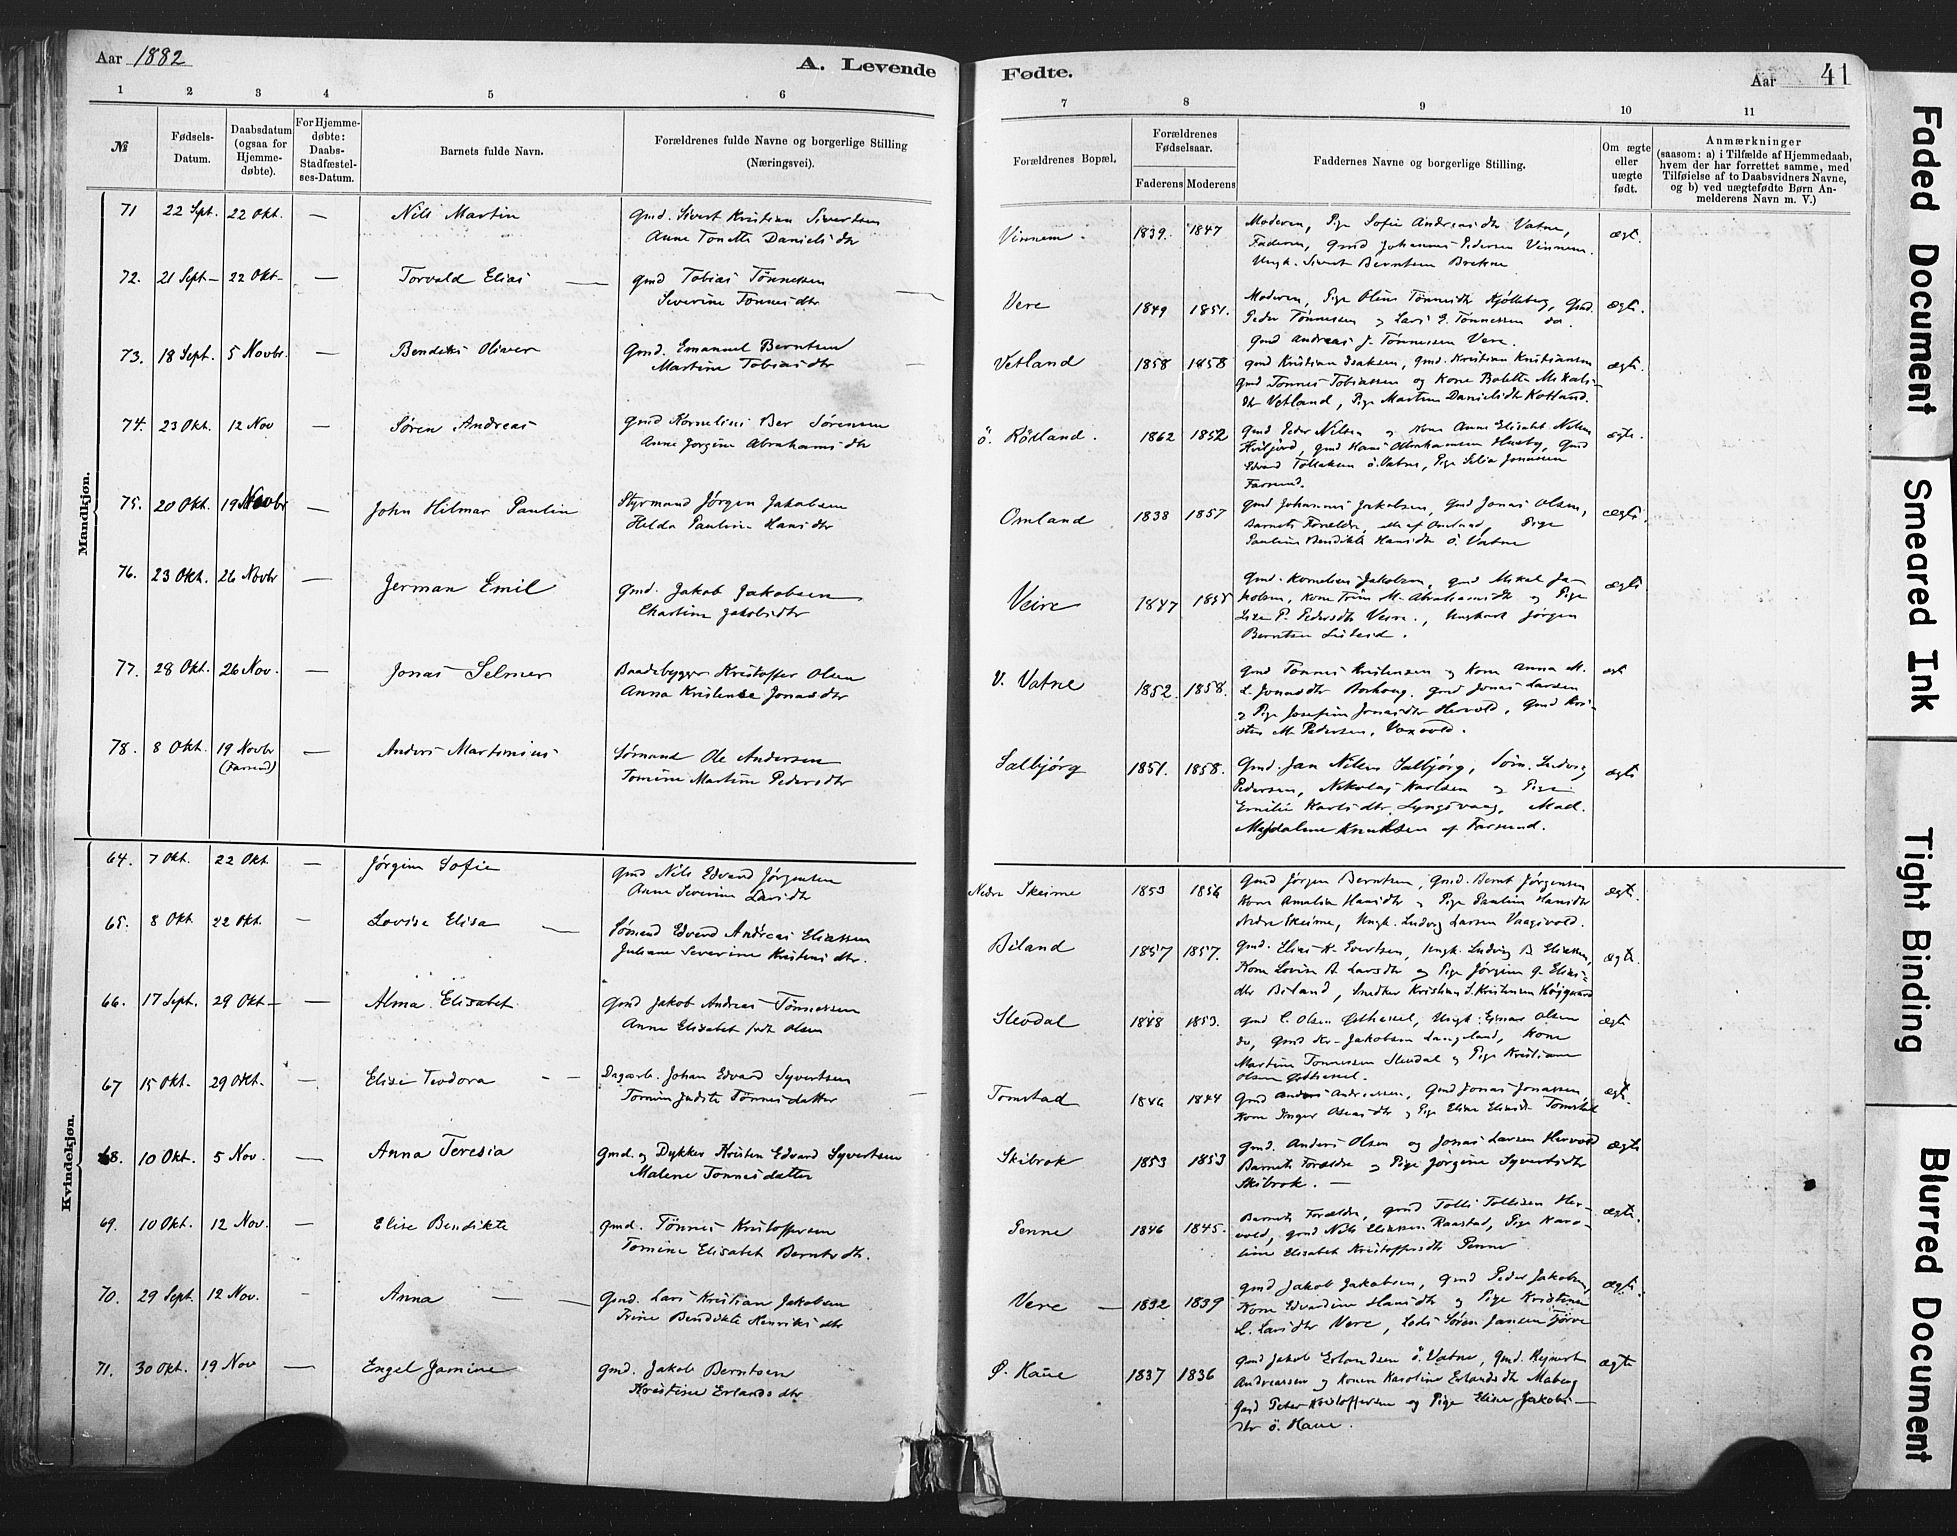 Aar 1882
A. Levende
1 2 3 4 5 6
№
Fødsels-Datum.
Daabsdatum (ogsaa for Hjemme-døbte).
For Hjemme-døbte: Daabs-Stadfæstel-ses-Datum.
Barnets fulde Navn.
Forældrenes fulde Navne og borgerlige Stilling
(Næringsvei).
Mandkjøn.
71 22 Spt. 22 Okt. — Nils Martin Gmd. Sivert Kristian Sivertsen
Anne Tonette Daniels dtr
72. 21 Sept — 22 Okt — — Torvald Elias — Gmd Tobias Tønnessen
Severine Tønnesdtr
73. 18 Sept. 5 Novbr. — Bendiks Oliver Gmd. Emanuel Berntsen
Martine Tobias dtr
74. 23 Okt. 12 Nov — Søren Andreas Gmd Kornelius Ber Sørensen
Anne Jørgine Abrahams dtr
75. 20 Okt. 19 Novbr — John Hilmar Paulin Styrmand Jørgen Jakobsen
Helda Pauline Hansdtr
76. 23 Okt. 26 Novbr — Jerman Emil Gmd. Jakob Jakobsen
Chartine Jakobsdtr
77. 28 Okt. 26 Nov. — Jonas Selmer Baadebygger Kristoffer Olsen
Anna Kristense Jonasdtr
78. 8 Okt. 19 Novbr — Anders Martinius Sømand Ole Andersen
(Farsund) Tomine Martine Pedersdtr
Kvindekjøn.
64. 7 Okt. 22 Okt — Jørgine Sofie Gmd Nils Edvard Jørgensen
Anne Severine Larsdtr
65. 8 Okt 22 Okt. — Lovise Elisa — Sømand Edvard Andreas Eliassen
Juliane Severine Kristens dtr.
66. 17 Sept. 29 Okt — — Alma Elisabet Gmd Jakob Andreas Tønnessen
Anne Elisabet født Olsen
67 15 Okt. 29 Okt. — Elise Teodora — — Dagarb. Johan Edvard Syvertsen
Tomine Judite Tønnesdatter
68. 10 Okt. 5 Nov. — Anna Teresia Gmd. og Dykker Kristen Edvard Syvertsen
Malene Tonnesdatter
69. 10 Okt. 12 Nov. — Elise Bendikte Gmd. Tønnes Kristoffersen
Tomine Elisabet Bernts dtr.
70. 29 Sept. 12 Nov. - Anna — — Gmd. Lars Kristian Jakobsen
Trine Bendikte Henriks dtr
71. 30 Okt. 19 Nov — Engel Jamine Gmd. Jakob Berntsen
Kristine Erlands dtr
Fødte.
Aar 41
7 8 9 10 11
Forældrenes Bopæl.
Forældrenes Fødselsaar.
Faderens Moderens
Faddernes Navne og borgerlige Stilling.
Om ægte eller uægte født.
Anmærkninger
(saasom: a) i Tilfælde af Hjemmedaab,
hvem der har forrettet samme, med
Tilføielse af to Daabsvidners Navne,
og b) ved uægtefødte Børn An-
melderens Navn m. V.)
Moderen, Pige Sofie Andreasdtr Vatne,
Vinnem. 1839. 1847 Faderen, Gmd Johannes Pedersen Vinnem. ægt.
Ungk. Sivert Berntsen Brekne
Moderen, Pige Oline Tønnesdtr Kjølleberg, Gmd.
Vere 1849 1851. Peder Tønnessen og Lars E. Tønnessen do. ægt.
Gmd Andreas J. Tønnessen Vere.
Vetland 1858 1858 Gmd Kristian Isaksen, Gmd. Kristian Kristiansen ægt.
Gmd Tønnes Tobiassen og Kone Bolette Mikals-
dtr Vetland, Pige Martine Danielsdtr Kotland.
ö. Rödland. 1862 1852 Gmd Peder Nilsen og Kone Anne Elisabet Nilsen ægte.
Gmd Hans Abrahamsen Husby, Gmd
Edvard Tollaksen ö. Vatne, Pige Selia Jonassen
Farsund.
Omland 1838 1857 Gmd Johannes Jakobsen, Gmd Jonas Olsen, ægte.
Barnets Forældre, alle af Omland, Pige
Pauline Bendikte Hansdtr ö. Vatne
Veire 1847 Gmd. Kornelius Jakobsen, Gmd Mikal Ja- ægte
kobsen, Kone Trine M. Abrahamsdtr og Pige
Lise P. Pedersdtr Veire., Ungkarl Jørgen
Berntsen
V. Vatne 1852. 1858. Gmd Tønnes Kristensen og Kone Anna M. ægt
L. Jonasdtr Borhoug. Gmd Jonas Larsen
og Pige Josefine Jonasdtr Hervold, Gmd Kri-
sten M. Pedersen,
Salbjörg 1851. 1858. Gmd. Jan Nilsen Salbjörg, Søm. Ludvig ægte
Pedersen, Nikolaj Karlsen og Pige
Emilie Karlsdtr Lyngsvaag, Mad.
Magdalene Knudsen af Farsund.
Nedre Skeime 1853 1856 Gmd Jørgen Berntsen, Gmd. Bernt Jørgensen ægt.
Kone Amalia Hansdtr og Pige Pauline Hansdtr
Nedre Skeime, Ungk. Ludvig Larsen Vaagsvold.
Biland 1857 1857. Gmd. Elias K. Evertsen, Ungk. Ludvig B Eliassen, ægte.
Kone Lovise A. Larsdtr og Pige Jørgine G. Elias-
dtr Biland, Snedker Kristian S. Kristensen Højgaard
Slevdal 1848 1853. Gmd C. Olsen Østhassel, Ungk. Ejnar Olsen ægte
do, Gmd Kr. Jakobsen Langeland, Kone
Martine Tønnessen Slevdal og Pige Kristiane
Olsen Østhassel.
Tomstad 1846 1844 Gmd Anders Andreassen, Gmd Jonas Jonassen ægt.
Kone Inger Oseasdtr og Pige Eline Eliasdtr Tomstad
Skibrok 1853 1853 Gmd. Anders Olsen og Jonas Larsen Hervold ægte
Barnets Forældre og Pige Jørgine Syvertsdtr
Skibrok. —
Penne 1846 1845. Barnets Forældre, Gmd Tolli Tollisen Her- ægte.
vold, Gmd Nils Eliassen Raastad, Pige Karo-
line Elisabet Kristoffersdtr Penne
Vere — 1832 1839 Gmd Jakob Jakobsen, Gmd Peder Jakobsen ægte.
Kone Edvardine Hansdtr og Pige Kristine
L. Larsdtr Vere, Lods Søren Jansen Tjørve
Ø. Haue 1837 1836 Gmd Jakob Erlandsen ö. Vatne, Gmd. Rejnert ægte
Andreassen og Konen Karoline Erlandsdtr Maberg
Gmd Peter Kristoffersen og Pige Eline Jakobs-
dtr ö. Haue.
Faded Document
Smeared Ink
Tight Binding
Blurred Document